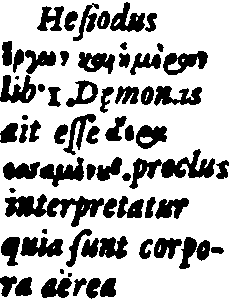 Heſiodus
ἔργων καὶ ἡμέρων
lib. 1. Dęmones
ait eſſe
proclus
interpretatur
quia ſunt corpo-
ra aërea